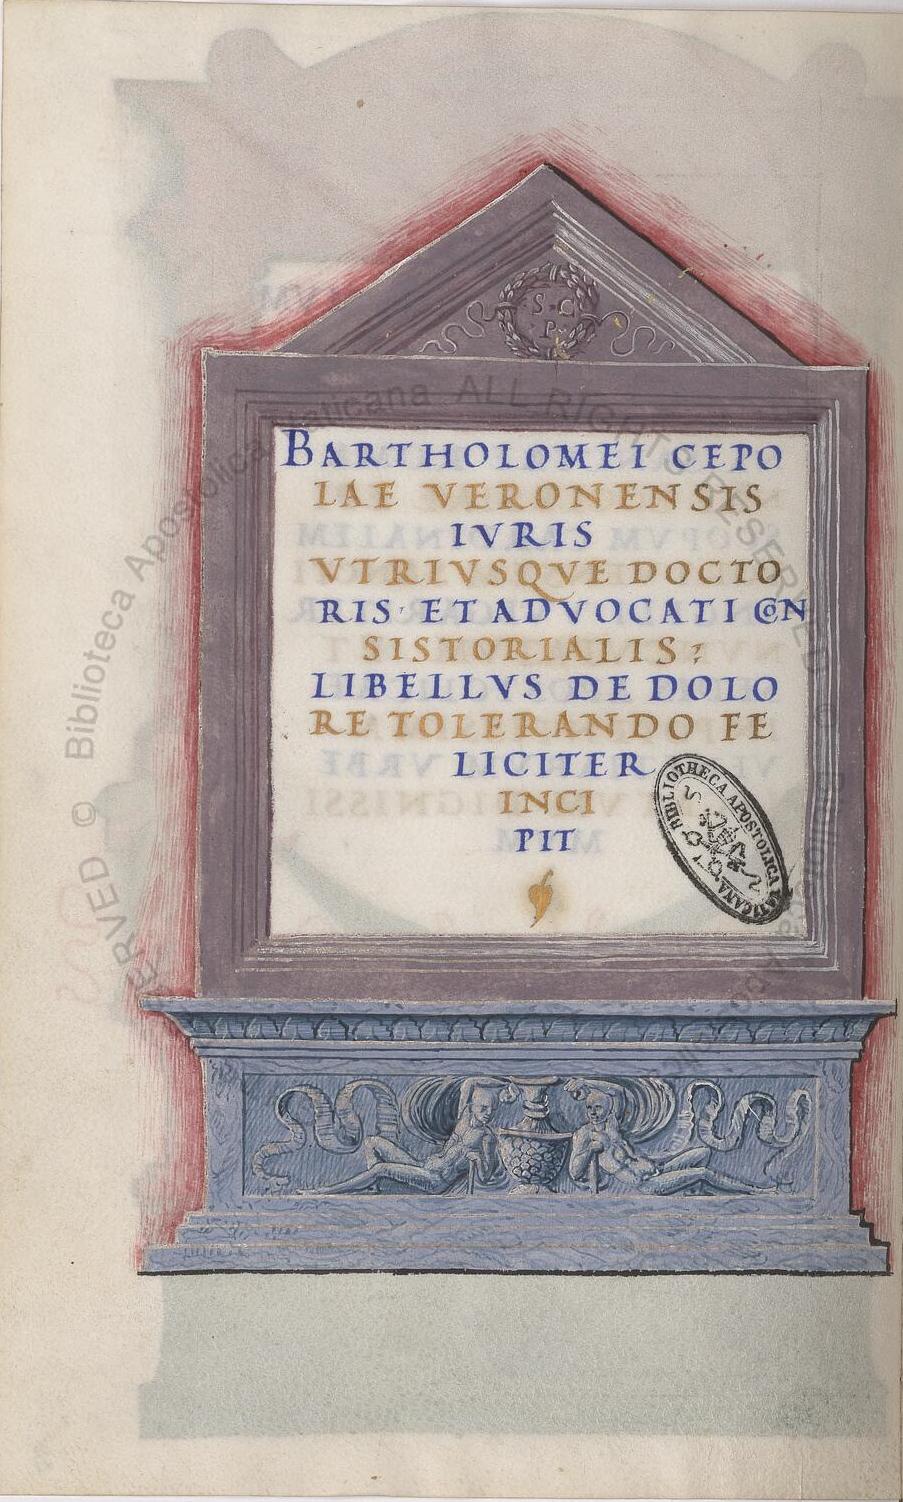 S C
P
BARTHOLOMEI CEPO
LAE VERONENSIS
IVRIS
VTRIVSQVE DOCTO
RIS· ET ADVOCATI CON
SISTORIALIS :
LIBELLVS DE DOLO
RE TOLERANDO FE
LICITER
INCI
PIT
BIBLIOTHECA APOSTOLICA VATICANA
© Biblioteca Apostolica Vaticana ALL RIGHTS RESERVED